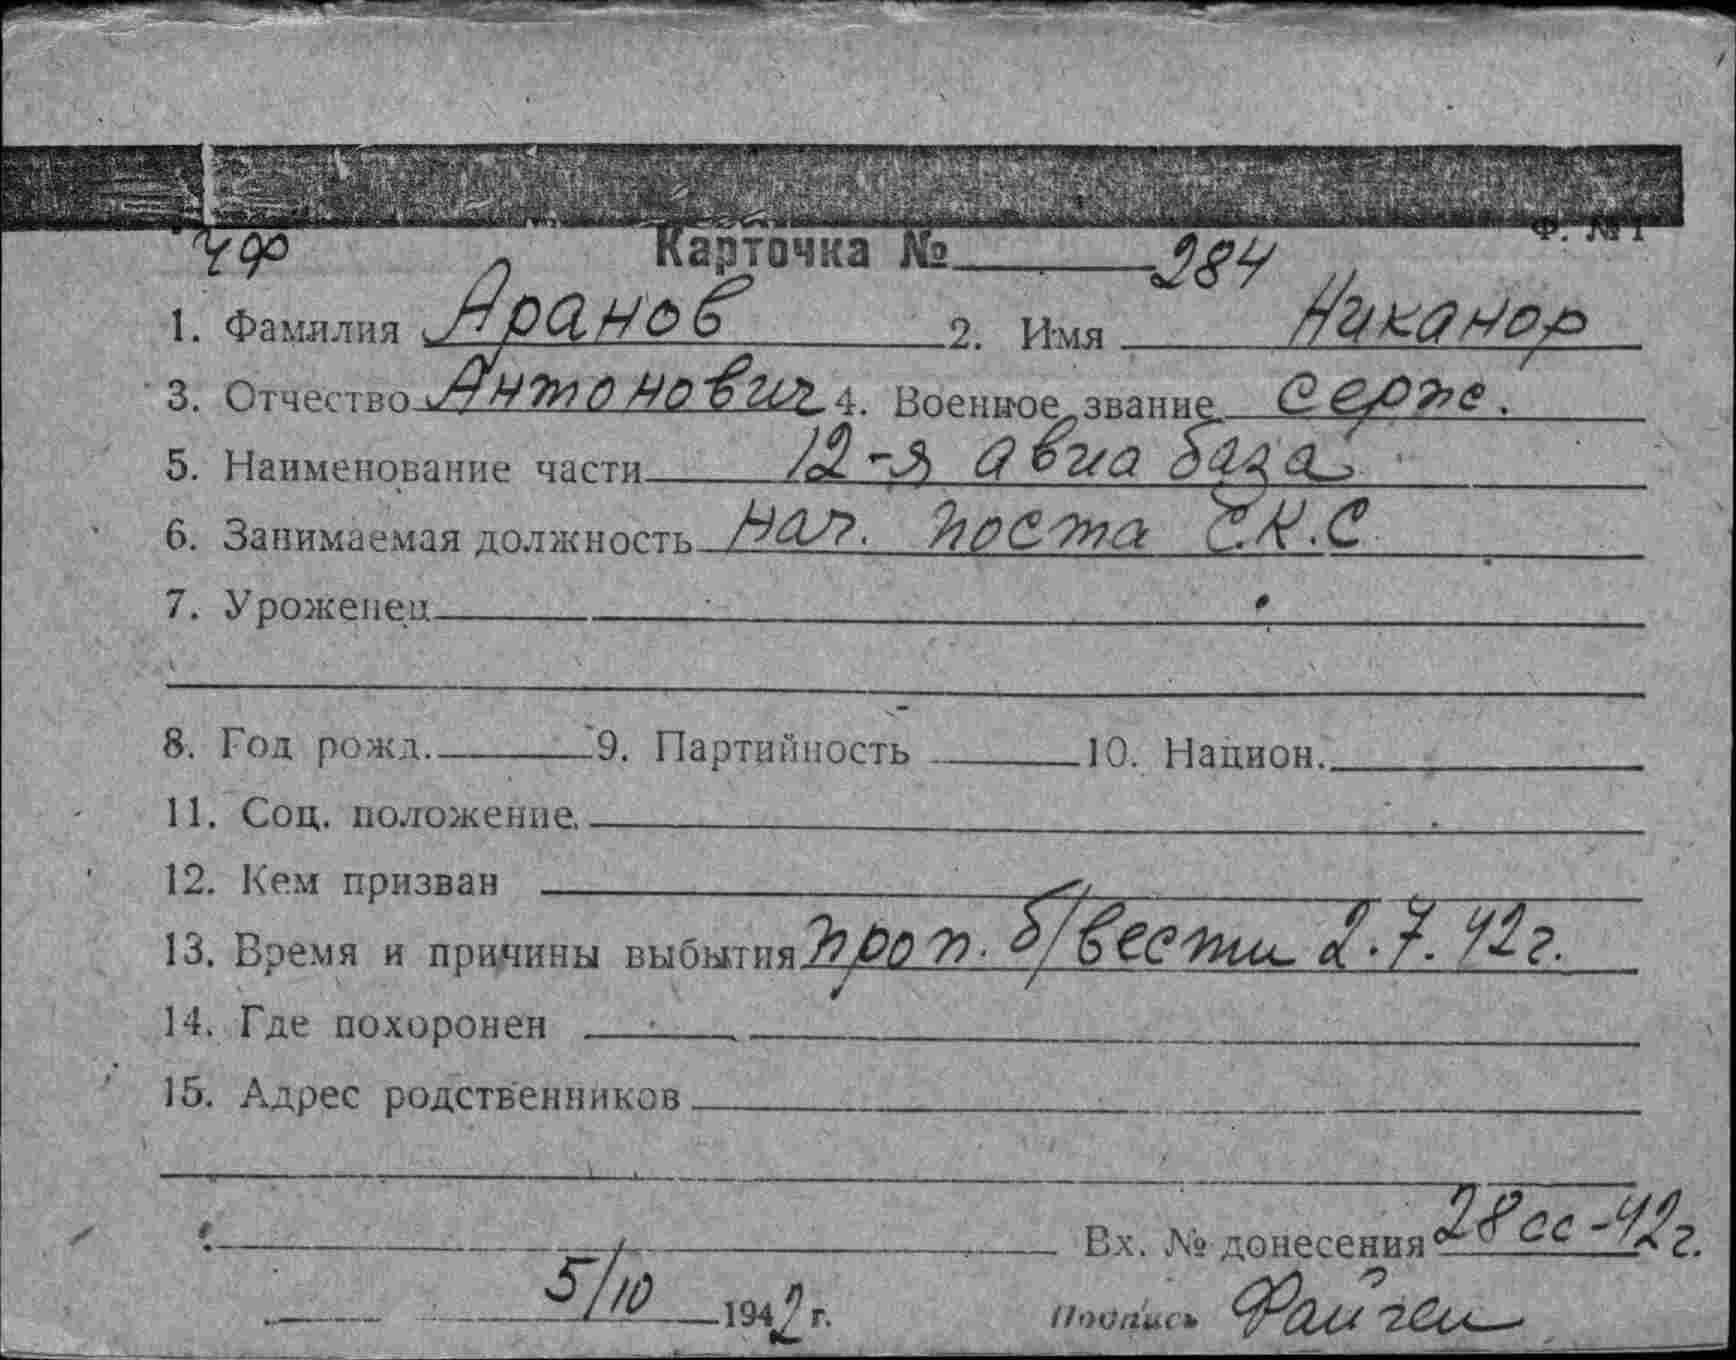 ЧФ Карточка № 284 Ф. №1
1. Фамилия Аранов 2. Имя Никанор
3. Отчество Антонович 4. Военное звание серж.
5. Наименование части 12-я авиа база
6. Занимаемая должность нач. поста С.К.С
7. Уроженец
8. Год рожд. 9. Партийность 10. Национ.
11. Соц. положение
12. Кем призван
13. Время и причины выбытия проп. б/вести 2.7.42г.
14. Где похоронен
15. Адрес родственников
Вх. № донесения 28сс-42г.
5/10 1942 г. Подпись